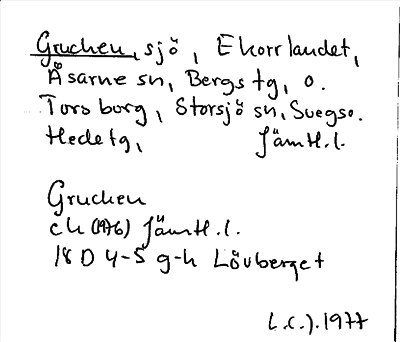 Gruchen, sjö, Ekorrlandet,
Åsarne sn, Bergs tg, o.
Torsborg, Storsjö sn, Svegs o.
Hede tg, Jämtl. l.
Gruchen
ek (1976) Jämtl. l.
18 D 4-5 g-h Lövberget
L.C.J. 1977